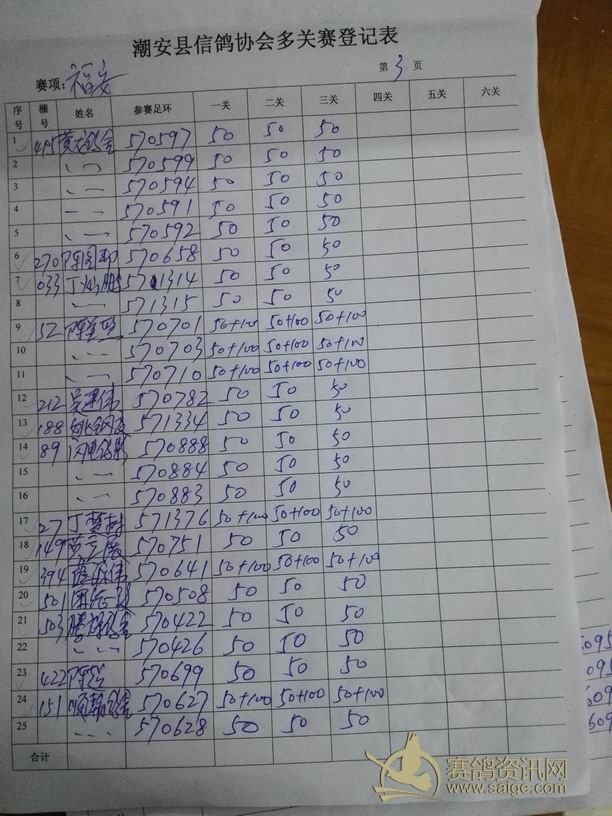 潮安县信鸽协会多关赛登记表
赛项: 福安 第 3 页
序号 棚号 姓名 参赛足环 一关 二关 三关 四关 五关 六关
1 570597 50 50 50
2 570599 50 50 50
3 570594 50 50 50
4 570591 50 50 50
5 570592 50 50 50
6 270 570658 50 50 50
7 033 571314 50 50 50
8 571315 50 50 50
9 52 570701 50+100 50+100 50+100
10 570703 50+100 50+100 50+100
11 570710 50+100 50+100 50+100
12 212 570782 50 50 50
13 188 571334 50 50 50
14 89 570888 50 50 50
15 570884 50 50 50
16 570883 50 50 50
17 27 571376 50+100 50+100 50+100
18 149 570751 50 50 50
19 394 570641 50+100 50+100 50+100
20 501 570508 50 50 50
21 503 570422 50 50 50
22 570426 50 50 50
23 422 570699 50 50 50
24 151 570627 50+100 50+100 50+100
25 570628 50 50 50
合计
赛鸽资讯网
www.saige.com